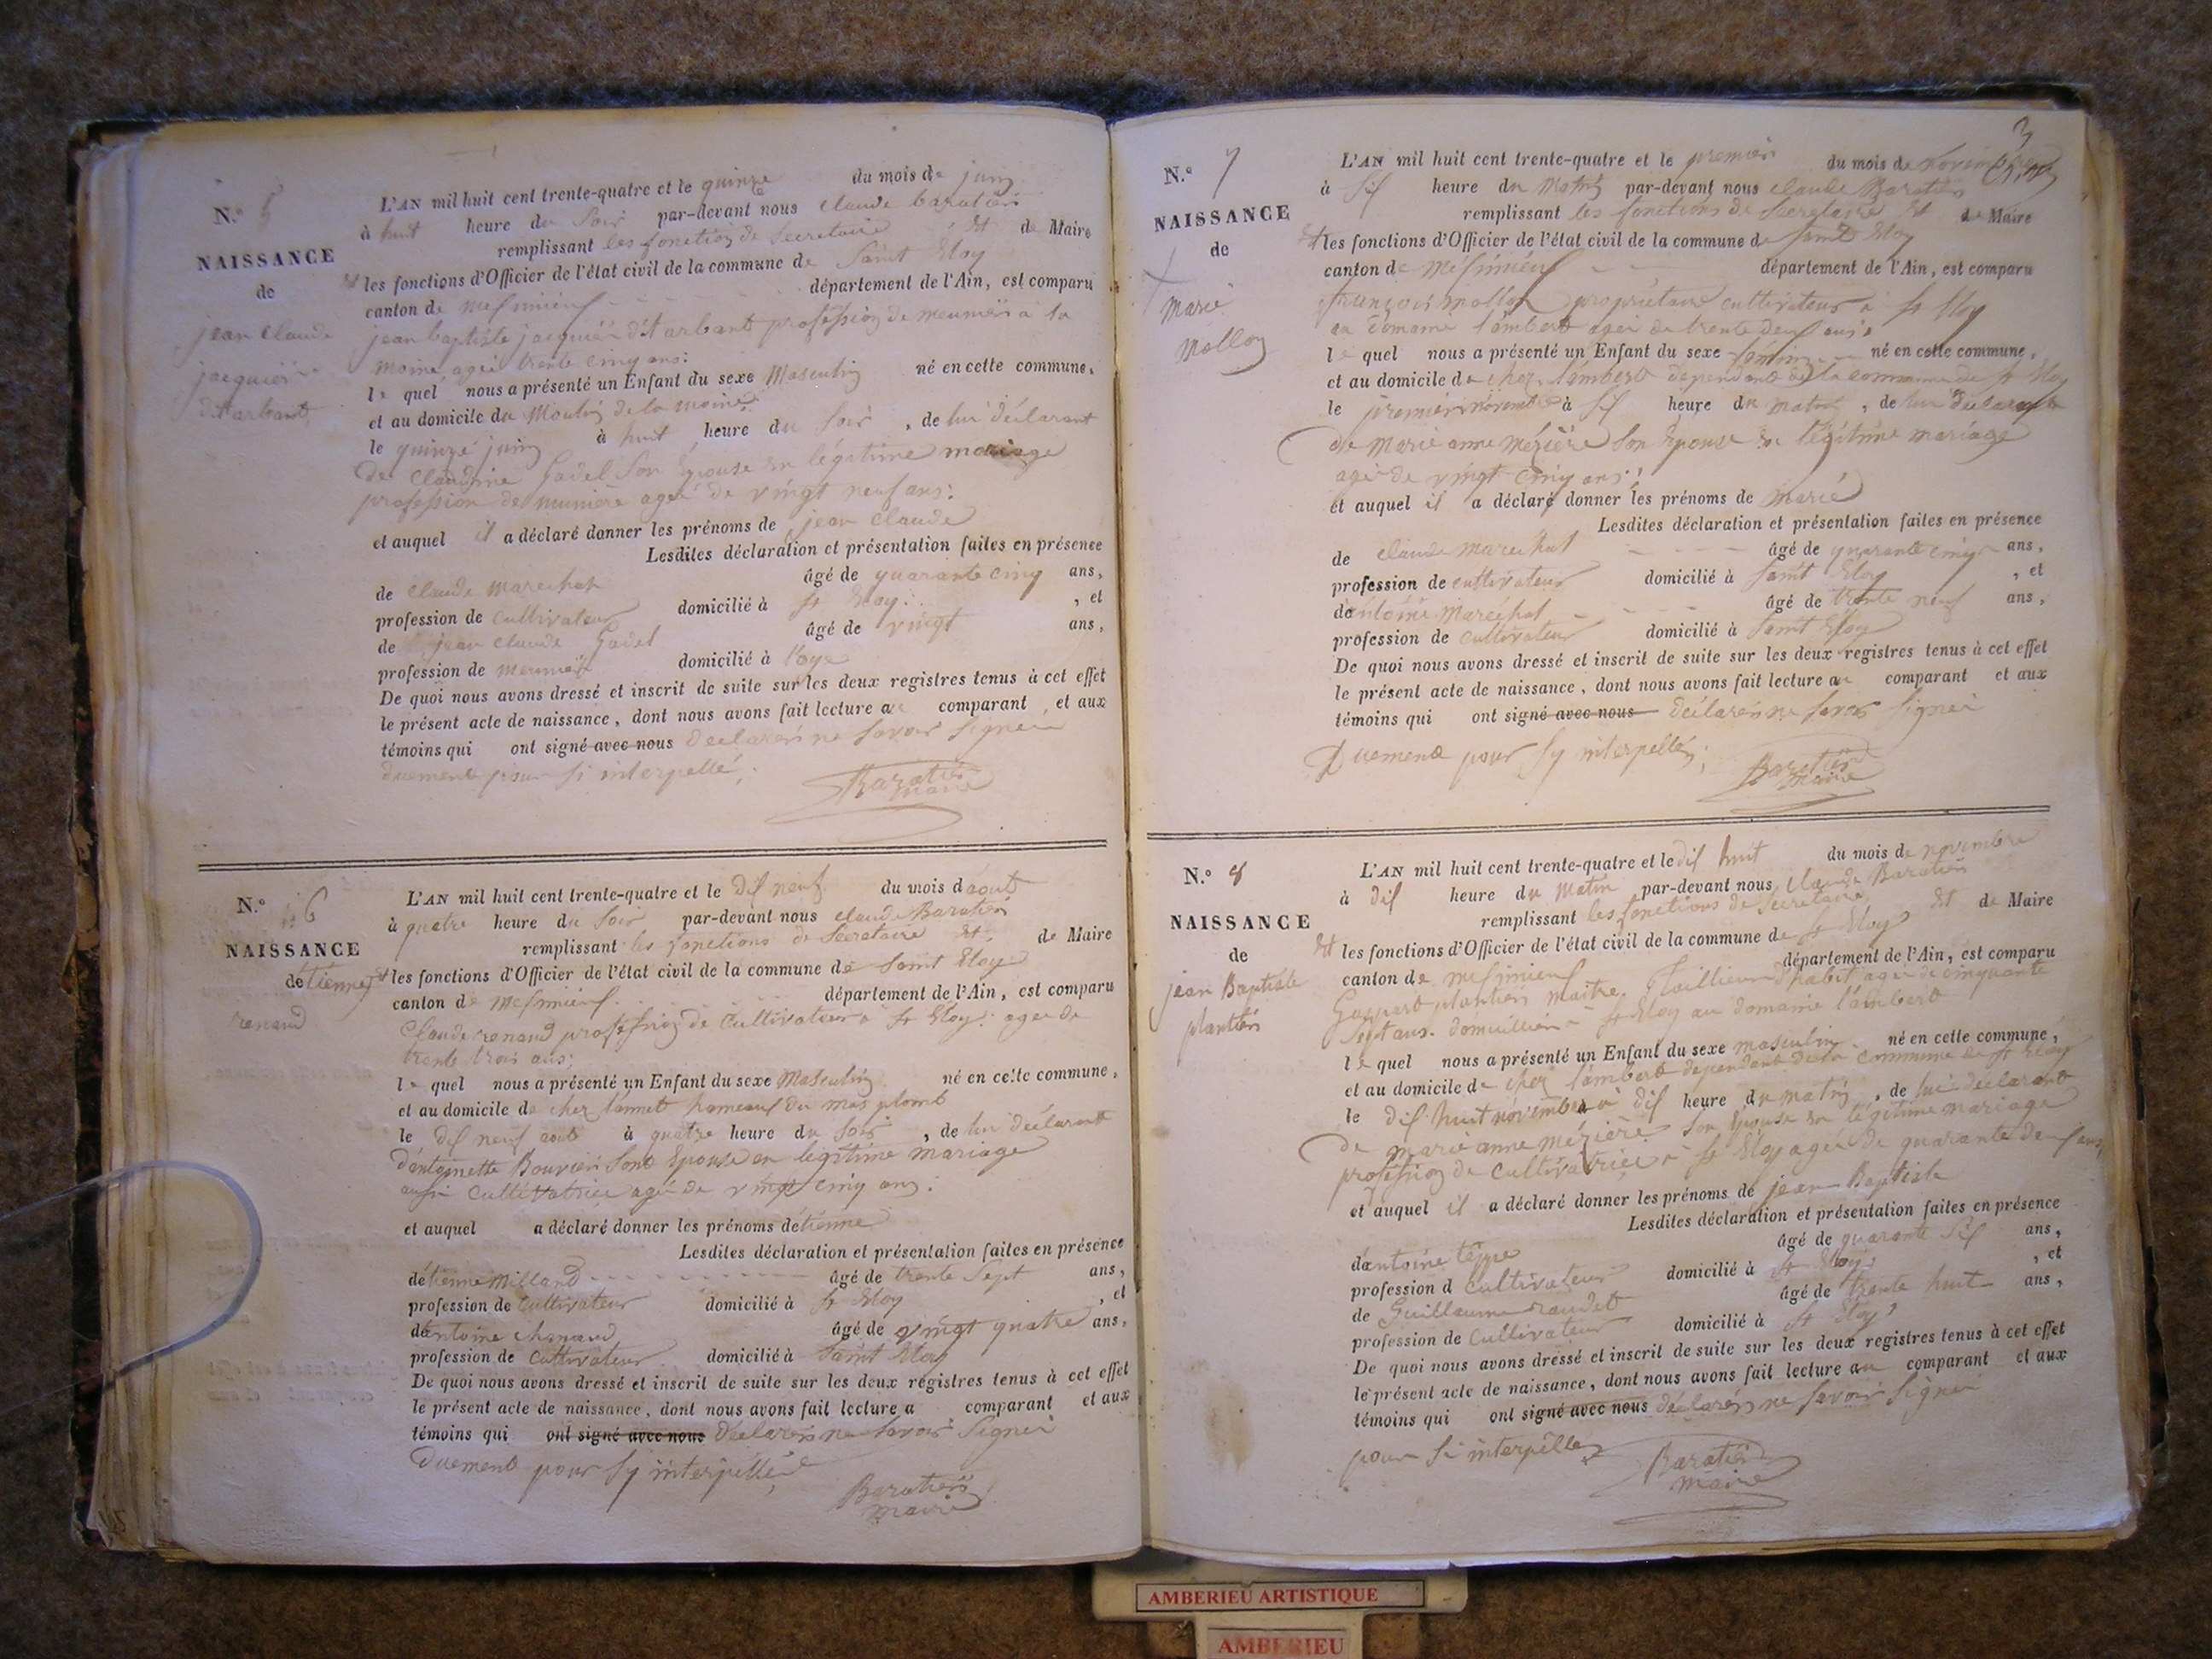 N.º 5
NAISSANCE
de
jean Claude
jacquier
L'AN mil huit cent trente-quatre et le quinze du mois de juin
à huit heure du Soir par-devant nous claude baratier
remplissant les fonction de Secretaire et de Maire
les fonctions d'Officier de l'état civil de la commune de Saint Eloy
canton de département de l'Ain, est comparu
jean baptiste jacquier profession de meunier à la
moine agé trente cinq ans
le quel nous a présenté un Enfant du sexe Masculin né en cette commune,
et au domicile du Moulin de la moine
le quinze juin à huit heure du Soir, de lui déclarant
de Claudine Gadel Son Epouse en légitime mariage
profession de muniere ageé de vingt neuf ans
et auquel il a déclaré donner les prénoms de jean Claude
Lesdites déclaration et présentation faites en présence
de Claude marechat âgé de quarante cinq ans,
profession de cultivateur domicilié à St Eloy, et
de jean claude Gadel âgé de vingt ans,
profession de meunier domicilié à
De quoi nous avons dressé et inscrit de suite sur les deux registres tenus à cet effet
le présent acte de naissance, dont nous avons fait lecture au comparant, et aux
témoins qui ont signé avec nous declarer ne savoir signer
duement pour si interpellé
Baratier
maire
N.º 6
NAISSANCE
detienne
renaud
L'AN mil huit cent trente-quatre et le dif neuf du mois daout
à quatre heure du Soir par-devant nous claude Baratier
remplissant les fonctions de Secretaire et de Maire
les fonctions d'Officier de l'état civil de la commune de Saint Eloy
canton de département de l'Ain, est comparu
Claude renaud profession de Cultivateur à St Eloy agé de
trente trois ans
le quel nous a présenté un Enfant du sexe Masculin né en cette commune,
et au domicile de chez hameau du mas plomb
le dif neuf aout à quatre heure du Soir, de lui déclarant
dantoinette Bouvier Epouse en legitime mariage
aussi Cultivatrice agé de vingt cinq ans
et auquel a déclaré donner les prénoms détienne
Lesdites déclaration et présentation faites en présence
détienne Milland âgé de trente Sept ans,
profession de Cultivateur domicilié à St Eloy, et
dantoine âgé de vingt quatre ans,
profession de cultivateur domicilié à Saint Eloy
De quoi nous avons dressé et inscrit de suite sur les deux registres tenus à cet effet
le présent acte de naissance, dont nous avons fait lecture a comparant et aux
témoins qui ont signé avec nous declarer ne savoir signer
duement pour sy interpellé
Baratier
maire
3
N.º 7
NAISSANCE
de
Marie
Mollon
L'AN mil huit cent trente-quatre et le premier du mois de novembre
à sif heure du Matin par-devant nous claude Baratier
remplissant les fonctions de Secretaire et de Maire
les fonctions d'Officier de l'état civil de la commune de Saint Eloy
canton de département de l'Ain, est comparu
françois mollon propriétaire cultivateur à St Eloy
au domaine lambert agé de trente deuf ans
le quel nous a présenté un Enfant du sexe féminin né en cette commune,
et au domicile de chez lambert dependant de la commune de St Eloy
le premier novembre à sif heure du matin, de lui déclarant
de Marie anne mézière Son Epouse en légitime mariage
agé de vingt cinq ans
et auquel il a déclaré donner les prénoms de Marie
Lesdites déclaration et présentation faites en présence
de claude marechat âgé de quarante cinq ans,
profession de cultivateur domicilié à Saint Eloy, et
dantoine Marechat âgé de trente neuf ans,
profession de cultivateur domicilié à Saint Eloy
De quoi nous avons dressé et inscrit de suite sur les deux registres tenus à cet effet
le présent acte de naissance, dont nous avons fait lecture au comparant et aux
témoins qui ont signé avec nous déclarer ne savoir signer
Duement pour sy interpellé
Baratier
maire
N.º 8
NAISSANCE
de
jean Baptiste
plantier
L'AN mil huit cent trente-quatre et le dif huit du mois de novembre
à dif heure du Matin par-devant nous Claude Baratier
remplissant les fonctions de Secretaire et de Maire
les fonctions d'Officier de l'état civil de la commune de St Eloy
canton de département de l'Ain, est comparu
plantier maitre Taillieur d'habit agé de cinquante
Sept ans à St Eloy au domaine lambert
le quel nous a présenté un Enfant du sexe masculin né en cette commune,
et au domicile de chez lambert dependant de la commune de St Eloy
le dif huit novembre à dif heure du matin, de lui déclarant
de marie anne mézière Son Epouse en légitime mariage
profession de cultivatrice à St Eloy agé de quarante deuf ans
et auquel il a déclaré donner les prénoms de jean Baptiste
Lesdites déclaration et présentation faites en présence
dantoine âgé de quarante Sif ans,
profession d Cultivateur domicilié à St Eloy, et
de Guillaume âgé de trente huit ans,
profession de Cultivateur domicilié à St Eloy
De quoi nous avons dressé et inscrit de suite sur les deux registres tenus à cet effet
le présent acte de naissance, dont nous avons fait lecture au comparant et aux
témoins qui ont signé avec nous déclarer ne savoir signer
pour si interpellé
Baratier
maire
AMBERIEU ARTISTIQUE
AMBERIEU